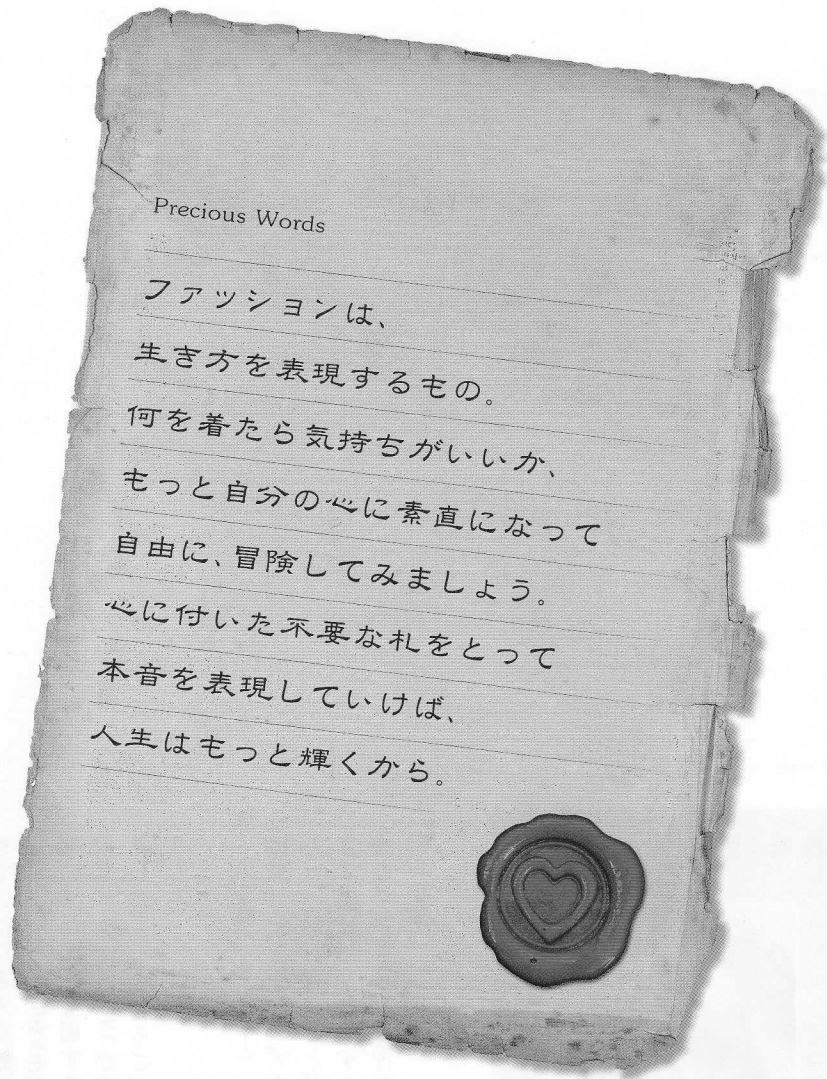 Precious Words
ファッションは、
生き方を表現するもの。
何を着たら気持ちがいいか、
もっと自分の心に素直になって
自由に、冒険してみましょう。
心に付いた不要な札をとって
本音を表現していけば、
人生はもっと輝くから。